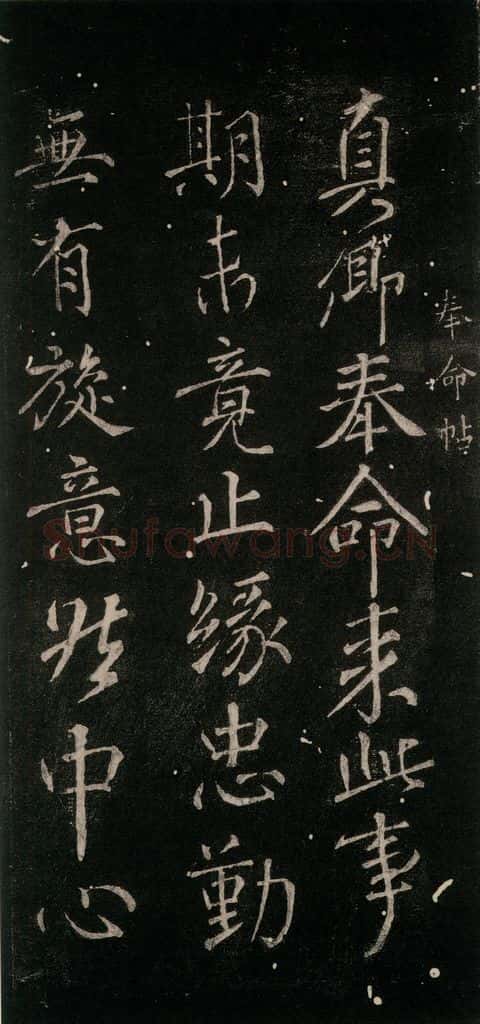 奉命帖
真卿奉命来此事
期未竟止緣忠勤
無有旋意然中心
Shufawang.CN